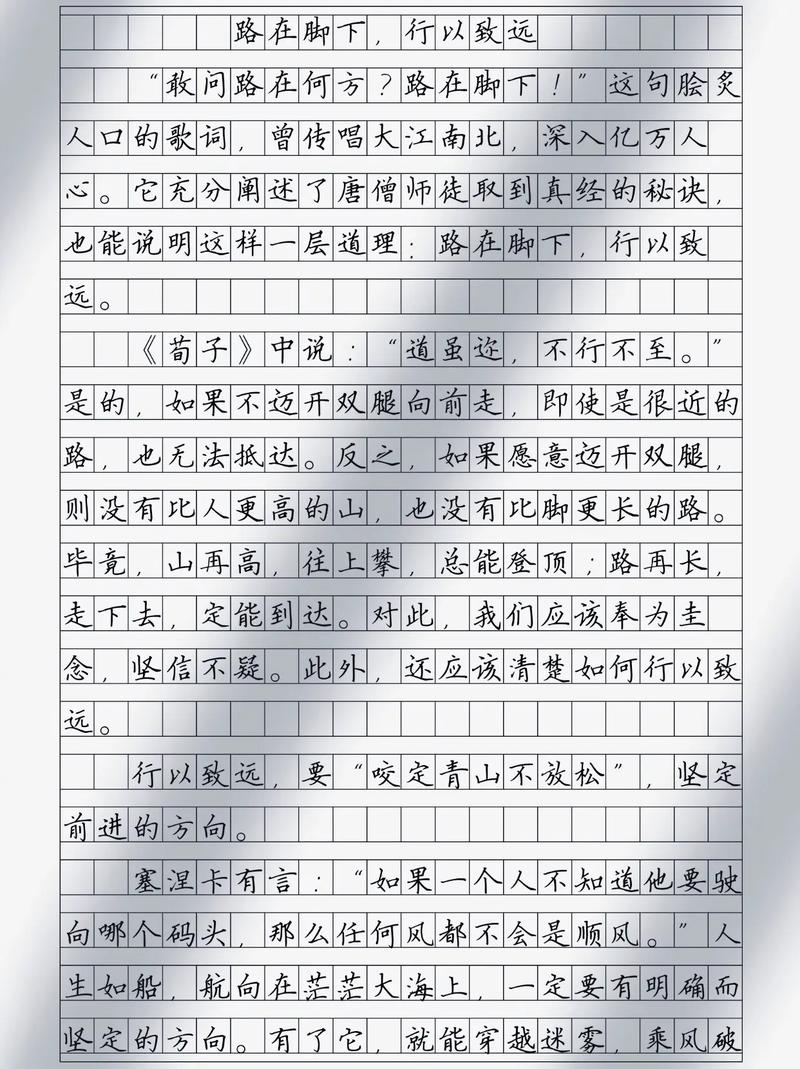 路在脚下，行以致远
“敢问路在何方？路在脚下！”这句脍炙
人口的歌词，曾传唱大江南北，深入亿万人
心。它充分阐述了唐僧师徒取到真经的秘诀，
也能说明这样一层道理：路在脚下，行以致
远。
《荀子》中说：“道虽迩，不行不至。”
是的，如果不迈开双腿向前走，即使是很近的
路，也无法抵达。反之，如果愿意迈开双腿，
则没有比人更高的山，也没有比脚更长的路。
毕竟，山再高，往上攀，总能登顶；路再长，
走下去，定能到达。对此，我们应该奉为圭
念，坚信不疑。此外，还应该清楚如何行以致
远。
行以致远，要“咬定青山不放松”，坚定
前进的方向。
塞涅卡有言：“如果一个人不知道他要驶
向哪个码头，那么任何风都不会是顺风。”人
生如船，航向在茫茫大海上，一定要有明确而
坚定的方向。有了它，就能穿越迷雾，乘风破